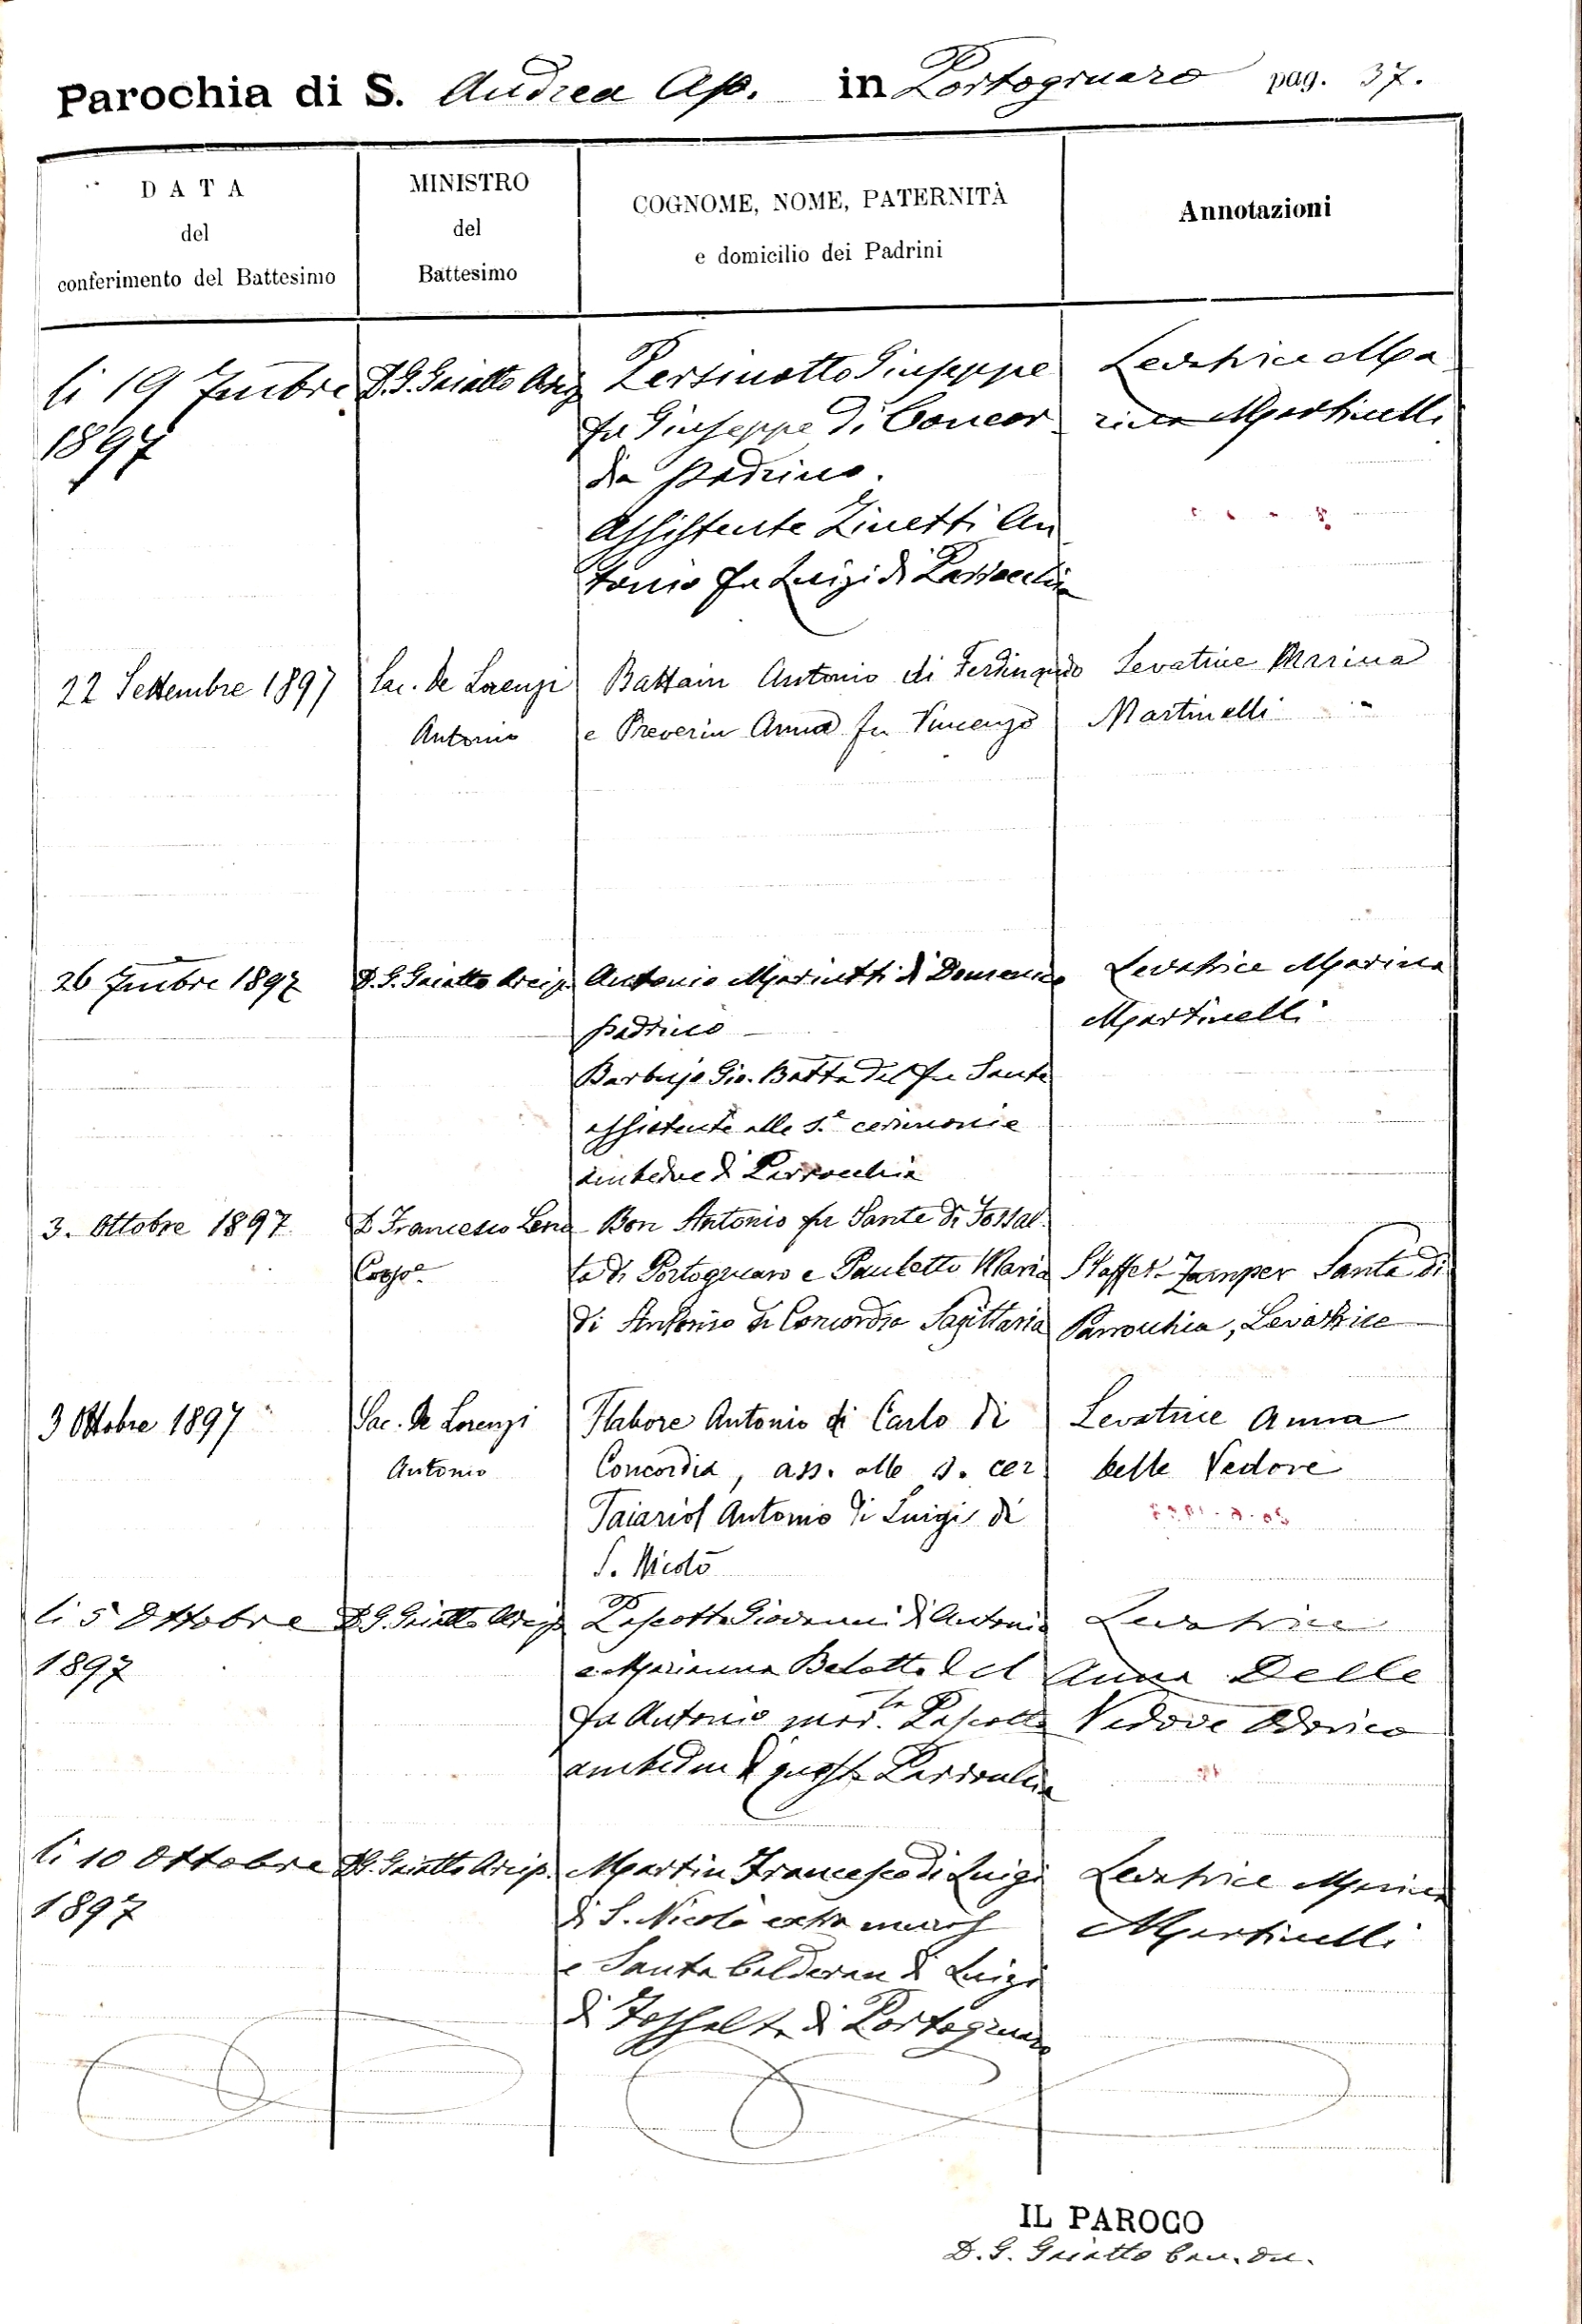 Parochia di S. Andrea Ap. in Portogruaro pag. 37.
DATA
del
conferimento del Battesimo
MINISTRO
del
Battesimo
COGNOME, NOME, PATERNITÀ
e domicilio dei Padrini
Annotazioni
li 19 7mbre
1897
D. G. Gaiatto Arcip
Persinotto Giuseppe
fu Giuseppe di Concor
dia padrino.
Assistente Zinetti An
tonio fu Luigi di Parrocchia
Levatrice Ma
rina Martinelli
22 Settembre 1897
Sac. De Lorenzi
Antonio
Battain Antonio di Ferdinando
e Preverin Anna fu Vincenzo
Levatrice Marina
Martinelli
26 7mbre 1897
D. G. Gaiatto Arcip.
Antonio Marinetti di Domenico
padrino
Barbujo Gio. Batta del fu Sante
assistente alle s.e cerimonie
ambedue di Parrocchia
Levatrice Marina
Martinelli
3. Ottobre 1897
D. Francesco Lena
Bon Antonio fu Sante di Fossal
ta di Portogruaro e Pauletto Maria
di Antonio di Concordia Sagittaria
Staffer-Zamper Santa di
Parrochia, Levatrice
3 Ottobre 1897
Sac. De Lorenzi
Antonio
Flabore Antonio di Carlo di
Concordia, ass. alle s. cer
Taiariol Antonio di Luigi di
S. Nicolò
Levatrice Anna
delle Vedove
li 5 Ottobre
1897
D. G. Gaiatto Arcip
Pascotto Giovanni di Antonio
e Marianna Belotto del
fu Antonio mar.ta Pascotto
ambedue di questa Parrocchia
Levatrice
Anna Delle
Vedove Odorico
li 10 Ottobre
1897
D. G. Gaiatto Arcip.
Martin Francesco di Luigi
di S. Nicolò extra muros
e Santa Calderan di Luigi
di Fossalta di Portogruaro
Levatrice Marina
Martinelli
IL PAROCO
D. G. Gaiatto